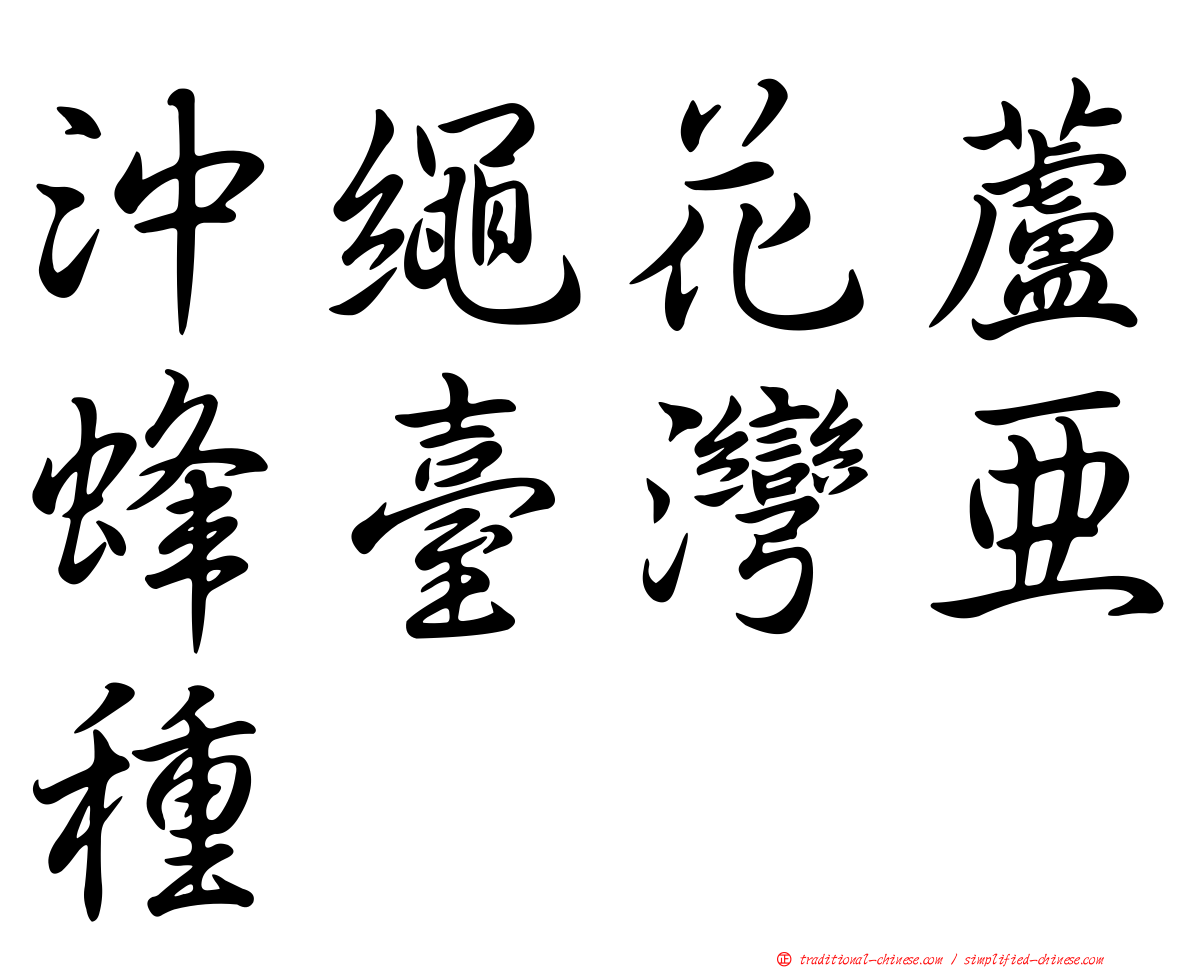 沖繩花蘆
蜂臺灣亜
種
㊣ traditional-chinese.com / simplified-chinese.com